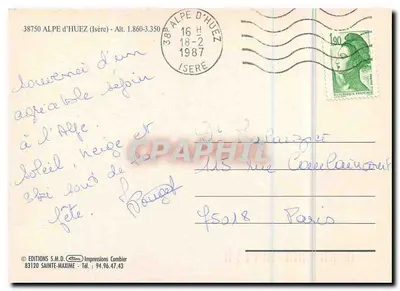 38750 ALPE d'HUEZ (Isère) - Alt. 1.860-3.350
38 ALPE D'HUEZ
16 H
18-2
1987
ISERE
1,90
Souvenir d'un
agréable séjour
à l'Alpe
Soleil, neige et
ski sont de la
fête.
115 rue Caulaincourt
75018 Paris
CPARAMA
© EDITIONS S.M.D. Impressions Combier
83120 SAINTE-MAXIME - Tél. : 94.96.47.43